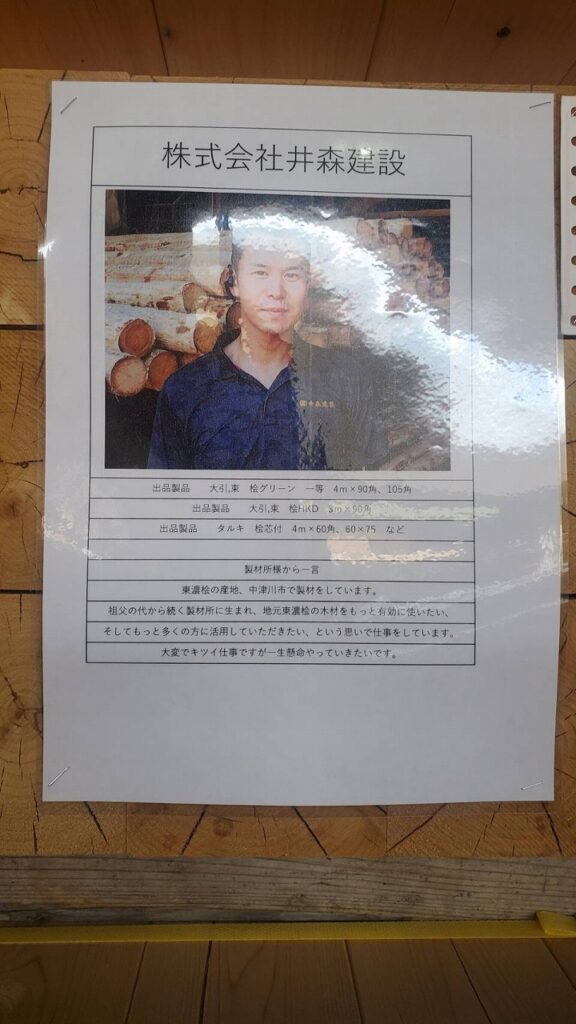 株式会社井森建設
出品製品　大引,束　桧グリーン　一等　4m×90角、105角
出品製品　大引,束　桧HKD　3m×90角
出品製品　タルキ　桧芯付　4m×60角、60×75　など
製材所様から一言
東濃桧の産地、中津川市で製材をしています。
祖父の代から続く製材所に生まれ、地元東濃桧の木材をもっと有効に使いたい、
そしてもっと多くの方に活用していただきたい、という思いで仕事をしています。
大変でキツイ仕事ですが一生懸命やっていきたいです。